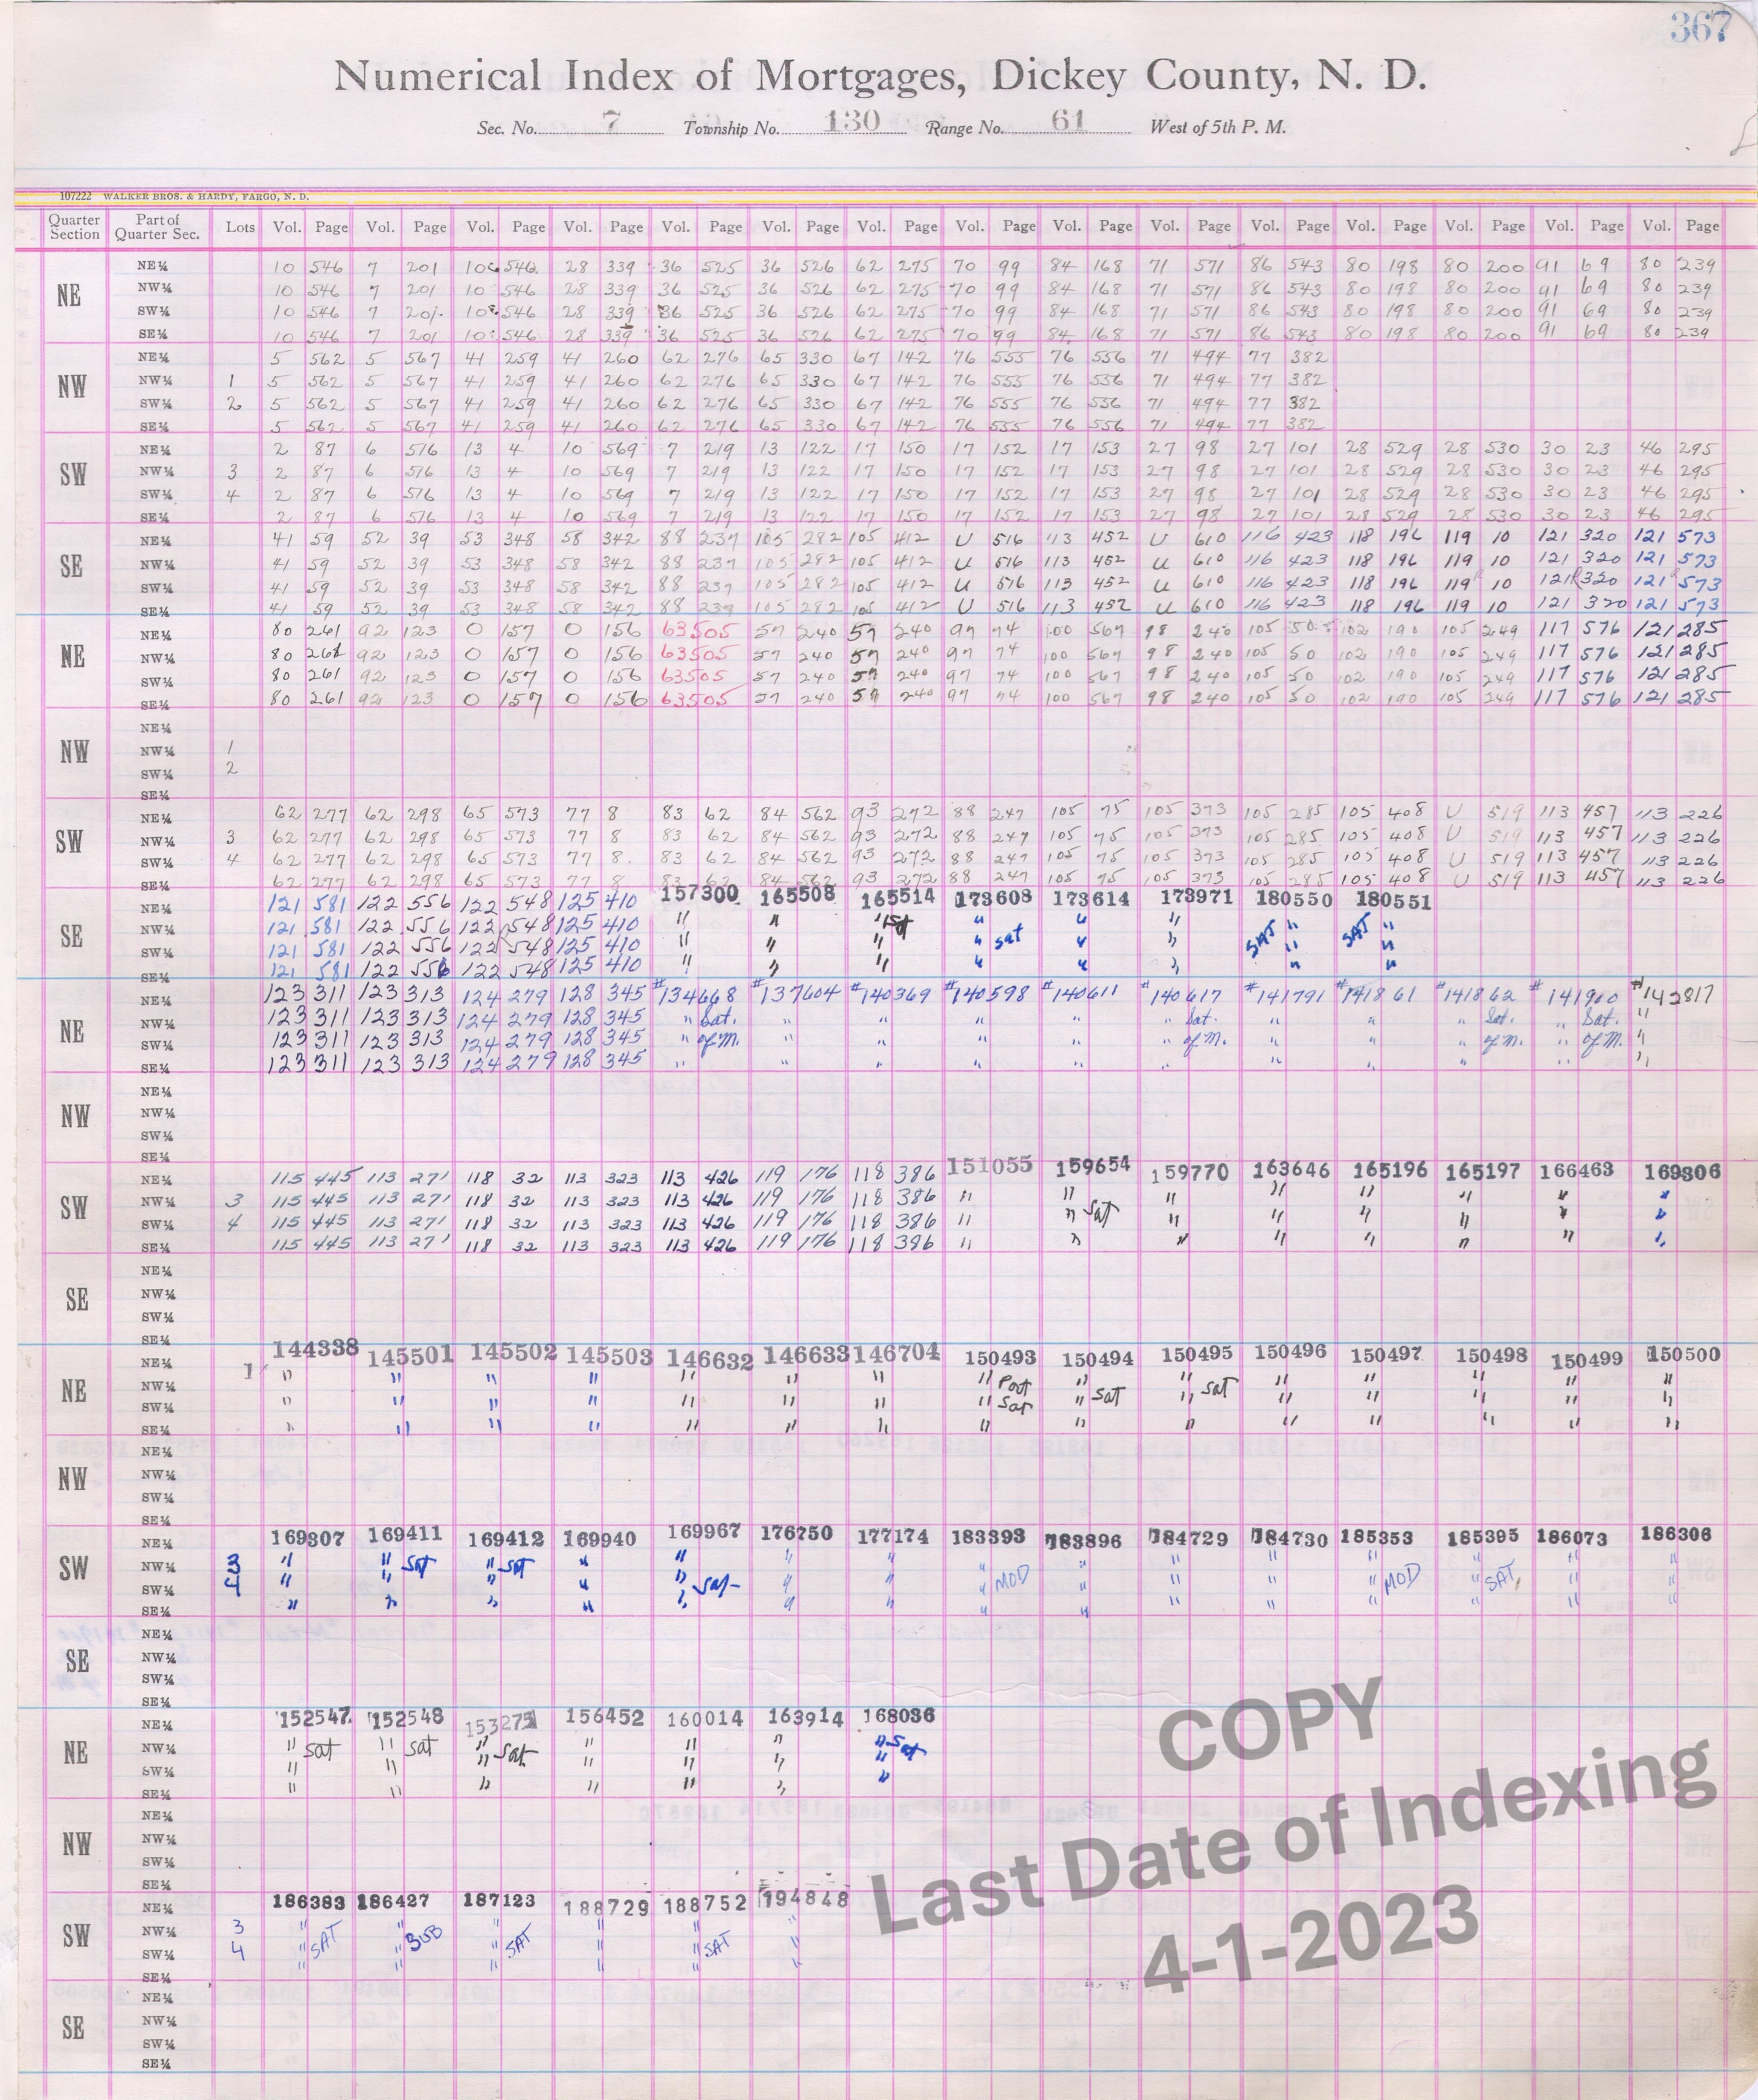 367
Numerical Index of Mortgages, Dickey County, N. D.
Sec. No. 7 Township No. 130 Range No. 61 West of 5th P. M.
107222 WALKER BROS. & HARDY, FARGO, N. D.
Quarter Section Part of Quarter Sec. Lots Vol. Page Vol. Page Vol. Page Vol. Page Vol. Page Vol. Page Vol. Page Vol. Page Vol. Page Vol. Page Vol. Page Vol. Page Vol. Page Vol. Page Vol. Page
NE
NE¼ 10 546 7 201 10 546 28 339 36 525 36 526 62 275 70 99 84 168 71 571 86 543 80 198 80 200 91 69 80 239
NW¼ 10 546 7 201 10 546 28 339 36 525 36 526 62 275 70 99 84 168 71 571 86 543 80 198 80 200 91 69 80 239
SW¼ 10 546 7 201 10 546 28 339 36 525 36 526 62 275 70 99 84 168 71 571 86 543 80 198 80 200 91 69 80 239
SE¼ 10 546 7 201 10 546 28 339 36 525 36 526 62 275 70 99 84 168 71 571 86 543 80 198 80 200 91 69 80 239
NW
NE¼ 5 562 5 567 41 259 41 260 62 276 65 330 67 142 76 555 76 556 71 494 77 382
NW¼ 1 5 562 5 567 41 259 41 260 62 276 65 330 67 142 76 555 76 556 71 494 77 382
SW¼ 2 5 562 5 567 41 259 41 260 62 276 65 330 67 142 76 555 76 556 71 494 77 382
SE¼ 5 562 5 567 41 259 41 260 62 276 65 330 67 142 76 555 76 556 71 494 77 382
SW
NE¼ 2 87 6 576 13 4 10 569 7 219 13 122 17 150 17 152 17 153 27 98 27 101 28 529 28 530 30 23 46 295
NW¼ 3 2 87 6 576 13 4 10 569 7 219 13 122 17 150 17 152 17 153 27 98 27 101 28 529 28 530 30 23 46 295
SW¼ 4 2 87 6 576 13 4 10 569 7 219 13 122 17 150 17 152 17 153 27 98 27 101 28 529 28 530 30 23 46 295
SE¼ 2 87 6 576 13 4 10 569 7 219 13 122 17 150 17 152 17 153 27 98 27 101 28 529 28 530 30 23 46 295
SE
NE¼ 41 59 52 39 53 348 58 342 88 239 105 282 105 412 U 516 113 452 U 610 116 423 118 196 119 10 121 320 121 573
NW¼ 41 59 52 39 53 348 58 342 88 239 105 282 105 412 U 516 113 452 U 610 116 423 118 196 119 10 121 320 121 573
SW¼ 41 59 52 39 53 348 58 342 88 239 105 282 105 412 U 516 113 452 U 610 116 423 118 196 119 10 121 320 121 573
SE¼ 41 59 52 39 53 348 58 342 88 239 105 282 105 412 U 516 113 452 U 610 116 423 118 196 119 10 121 320 121 573
NE
NE¼ 80 261 92 123 0 157 0 156 63505 57 240 57 240 97 74 100 567 98 240 105 50 102 190 105 249 117 576 121 285
NW¼ 80 261 92 123 0 157 0 156 63505 57 240 57 240 97 74 100 567 98 240 105 50 102 190 105 249 117 576 121 285
SW¼ 80 261 92 123 0 157 0 156 63505 57 240 57 240 97 74 100 567 98 240 105 50 102 190 105 249 117 576 121 285
SE¼ 80 261 92 123 0 157 0 156 63505 57 240 57 240 97 74 100 567 98 240 105 50 102 190 105 249 117 576 121 285
NW
NE¼
NW¼ 1
SW¼ 2
SE¼
SW
NE¼ 62 277 62 298 65 573 77 8 83 62 84 562 93 272 88 247 105 75 105 373 105 285 105 408 U 519 113 457 113 226
NW¼ 3 62 277 62 298 65 573 77 8 83 62 84 562 93 272 88 247 105 75 105 373 105 285 105 408 U 519 113 457 113 226
SW¼ 4 62 277 62 298 65 573 77 8 83 62 84 562 93 272 88 247 105 75 105 373 105 285 105 408 U 519 113 457 113 226
SE¼ 62 277 62 298 65 573 77 8 83 62 84 562 93 272 88 247 105 75 105 373 105 285 105 408 U 519 113 457 113 226
SE
NE¼ 121 581 122 556 122 548 125 410 157300 165508 165514 173608 173614 173971 180550 180551
NW¼ 121 581 122 556 122 548 125 410 " " " Sat " " " " "
SW¼ 121 581 122 556 122 548 125 410 " " " " sat " " SAT " SAT "
SE¼ 121 581 122 556 122 548 125 410 " " " " " " " "
NE
NE¼ 123 311 123 313 124 279 128 345 #134668 #137604 #140369 #140598 #140611 #140617 #141791 #141861 #141862 #141900 #142817
NW¼ 123 311 123 313 124 279 128 345 " Sat. " " " " " Sat. " " " Sat. " Sat. "
SW¼ 123 311 123 313 124 279 128 345 " of M. " " " " " of M. " " " of M. " of M. "
SE¼ 123 311 123 313 124 279 128 345 " " " " " " " " " " "
NW
NE¼
NW¼
SW¼
SE¼
SW
NE¼ 115 445 113 271 118 32 113 323 113 426 119 176 118 386 151055 159654 159770 163646 165196 165197 166463 169306
NW¼ 3 115 445 113 271 118 32 113 323 113 426 119 176 118 386 " " " " " " " "
SW¼ 4 115 445 113 271 118 32 113 323 113 426 119 176 118 386 " " Sat " " " " " "
SE¼ 115 445 113 271 118 32 113 323 113 426 119 176 118 386 " " " " " " " "
SE
NE¼
NW¼
SW¼
SE¼
NE
NE¼ 1 144338 145501 145502 145503 146632 146633 146704 150493 150494 150495 150496 150497 150498 150499 150500
NW¼ " " " " " " " " Part " " " " " " "
SW¼ " " " " " " " " Sat " sat " sat " " " " "
SE¼ " " " " " " " " " " " " " " "
NW
NE¼
NW¼
SW¼
SE¼
SW
NE¼ 169307 169411 169412 169940 169967 176750 177174 183393 183896 184729 184730 185353 185395 186073 186306
NW¼ 3 " " Sat " Sat " " " " " " " " " " " "
SW¼ 4 " " " " " Sat " " " MOD " " " " MOD " SAT " "
SE¼ " " " " " " " " " " "
SE
NE¼
NW¼
SW¼
SE¼
NE
NE¼ 152547 152548 153275 156452 160014 163914 168036
NW¼ " sat " sat " Sat " " " " Sat
SW¼ " " " " " " "
SE¼ " " " " " " "
NW
NE¼
NW¼
SW¼
SE¼
SW
NE¼ 186383 186427 187123 188729 188752 194848
NW¼ 3 " " " " " "
SW¼ 4 " SAT " SUB " SAT " " SAT "
SE¼
SE
NE¼
NW¼
SW¼
SE¼
COPY
Last Date of Indexing
4-1-2023